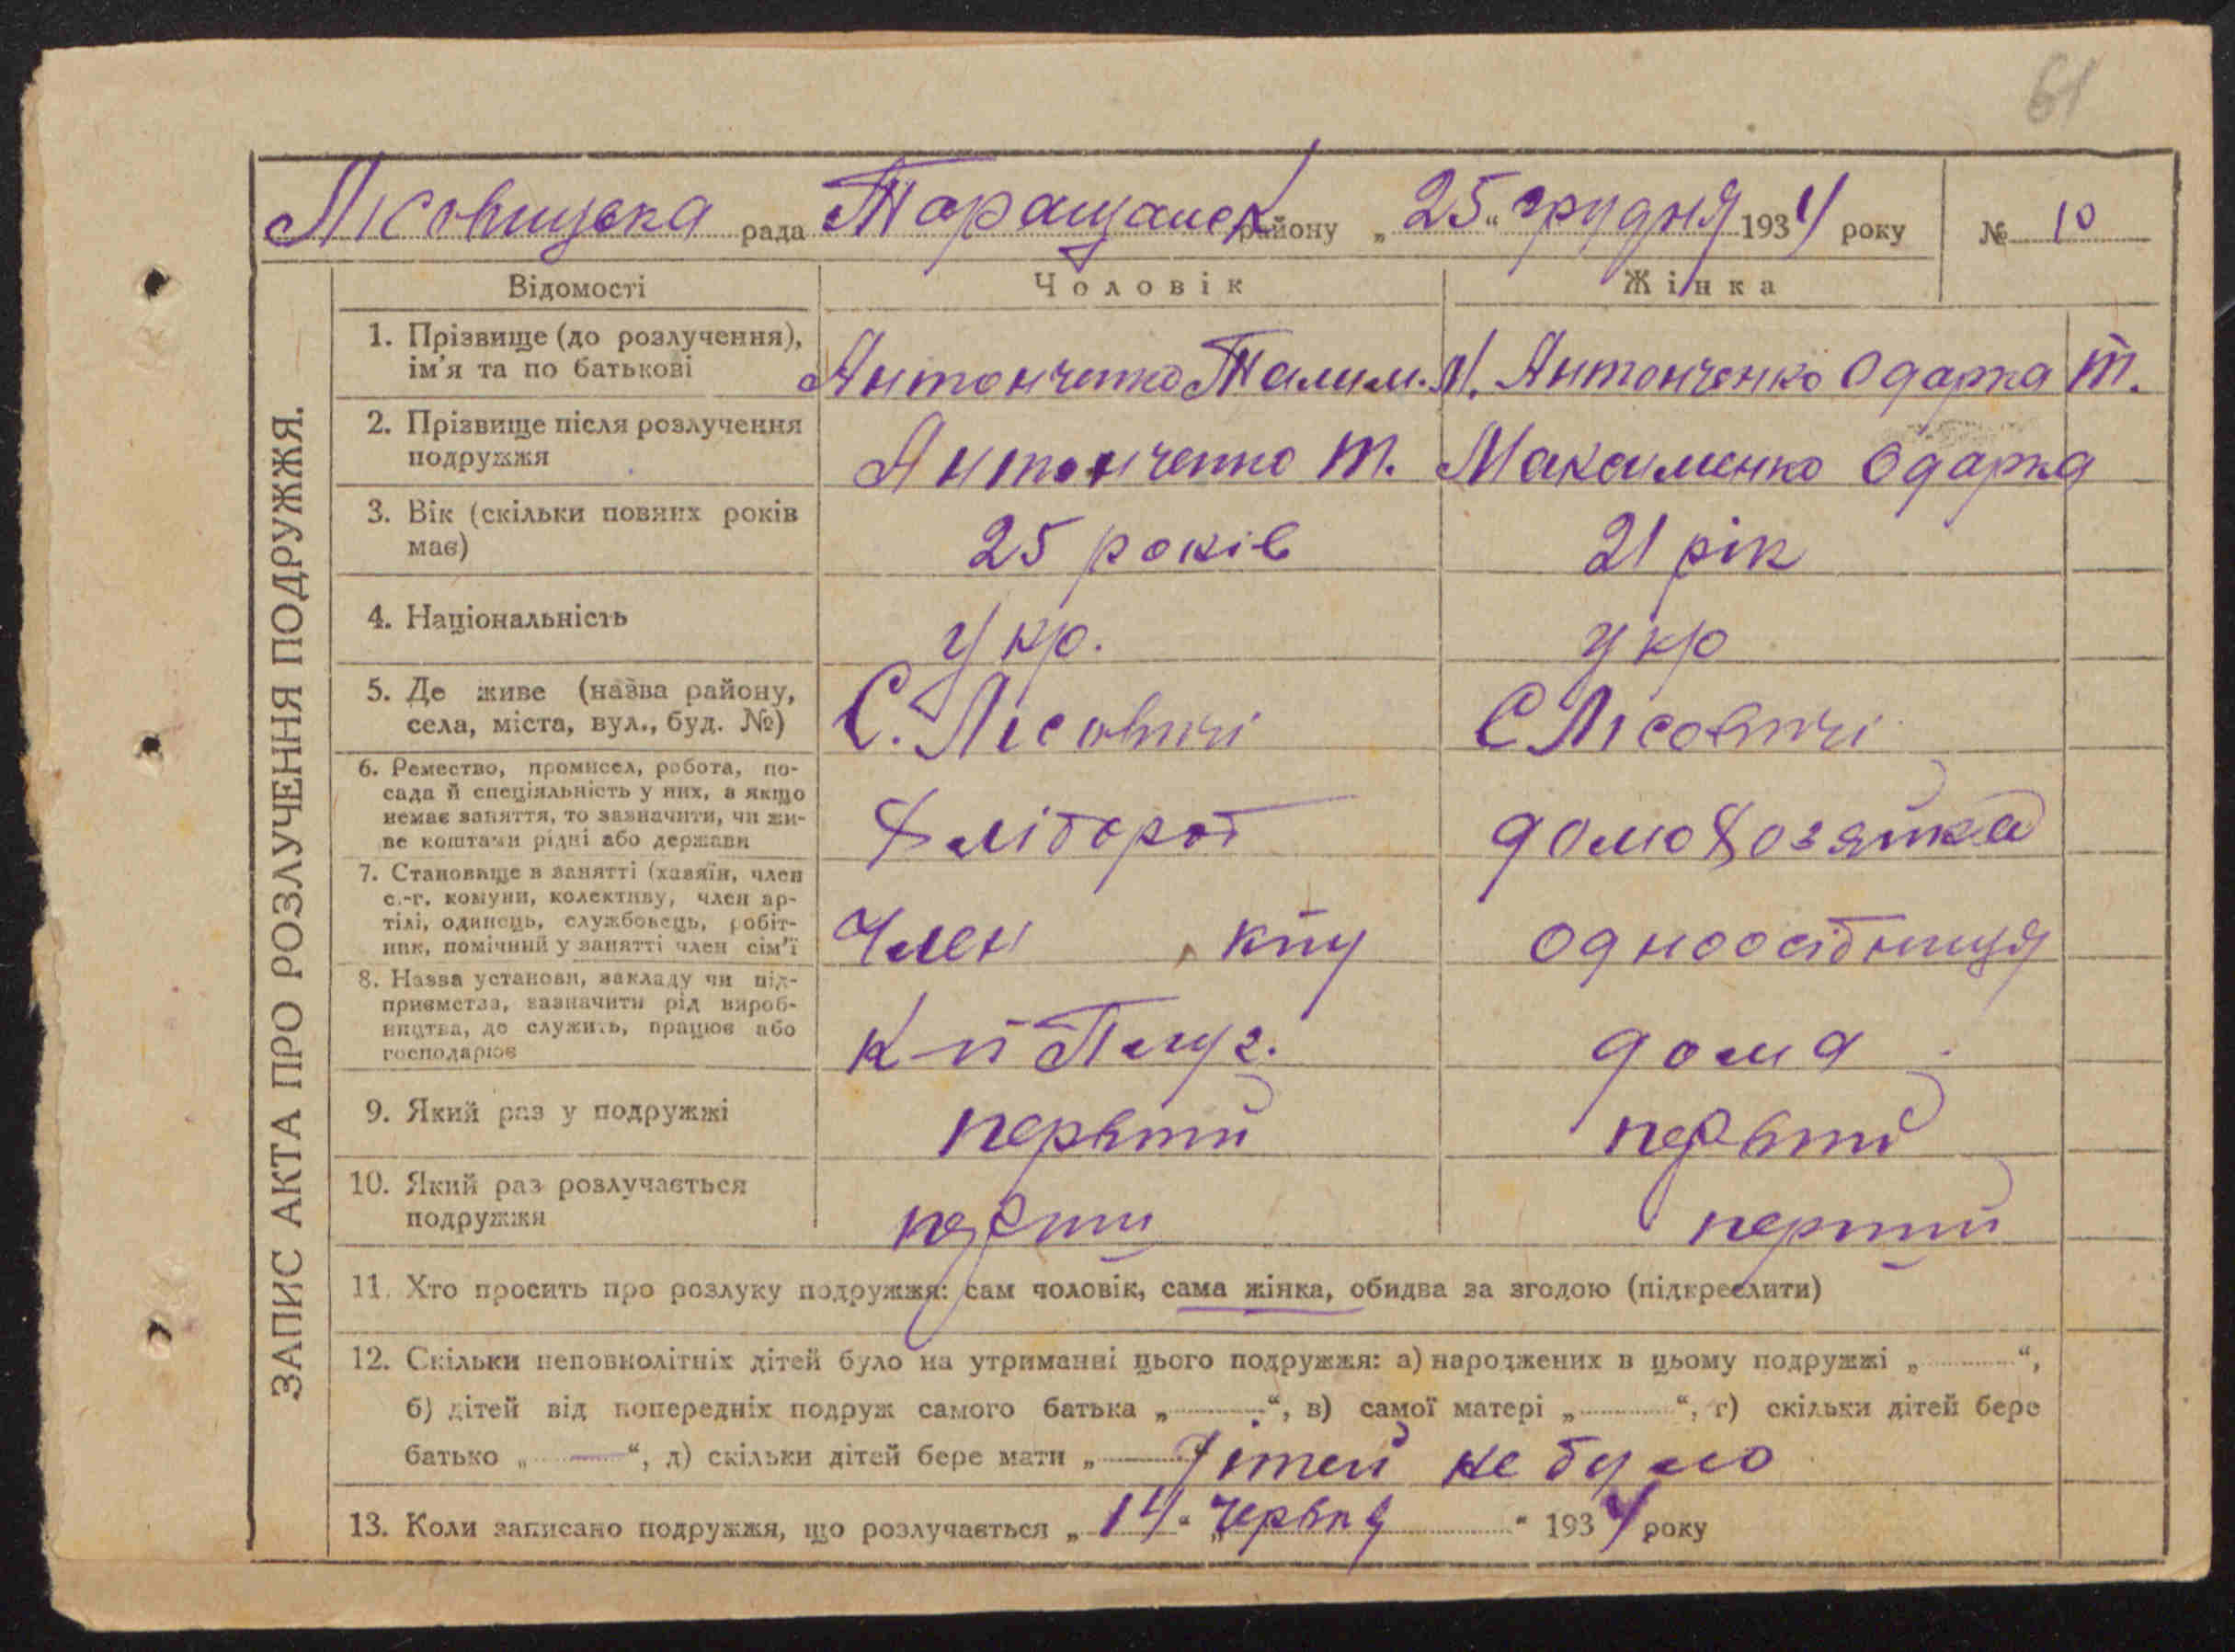 61
Лісовицька рада Таращанськ району „25“ грудня 1934 року № 10
ЗАПИС АКТА ПРО РОЗЛУЧЕННЯ ПОДРУЖЖЯ.
Відомості Чоловік Жінка
1. Прізвище (до розлучення),
ім'я та по батькові
Антонченко М. Антонченко Одарка Т.
2. Прізвище після розлучення
подружжя
Антонченко Т. Максименко Одарка
3. Вік (скільки повних років
має)
25 років 21 рік
4. Національність
укр. укр
5. Де живе (назва району,
села, міста, вул., буд. №)
С. Лісовичі С Лісовичі
6. Ремество, промисел, робота, по-
сада й спеціяльність у них, а якщо
немає заняття, то зазначити, чи жи-
ве коштами рідні або держави
Хлібороб домохозяйка
7. Становище в занятті (хазяїн, член
с.-г. комуни, колективу, член ар-
тілі, одинець, службовець, робіт-
ник, помічний у занятті член сім'ї
Член одноосібниця
8. Назва установи, закладу чи під-
приємства, зазначити рід вироб-
ництва, де служить, працює або
господарює
Плуг. дома
9. Який раз у подружжі
первий первий
10. Який раз розлучається
подружжя
перший перший
11. Хто просить про розлуку подружжя: сам чоловік, сама жінка, обидва за згодою (підкреслити)
12. Скільки неповнолітніх дітей було на утриманні цього подружжя: а) народжених в цьому подружжі „ “,
б) дітей від попередніх подруж самого батька „ “, в) самої матері „ “, г) скільки дітей бере
батько „ — “, д) скільки дітей бере мати „ Дітей не було
13. Коли записано подружжя, що розлучається „14“ „Червня“ 1934 року